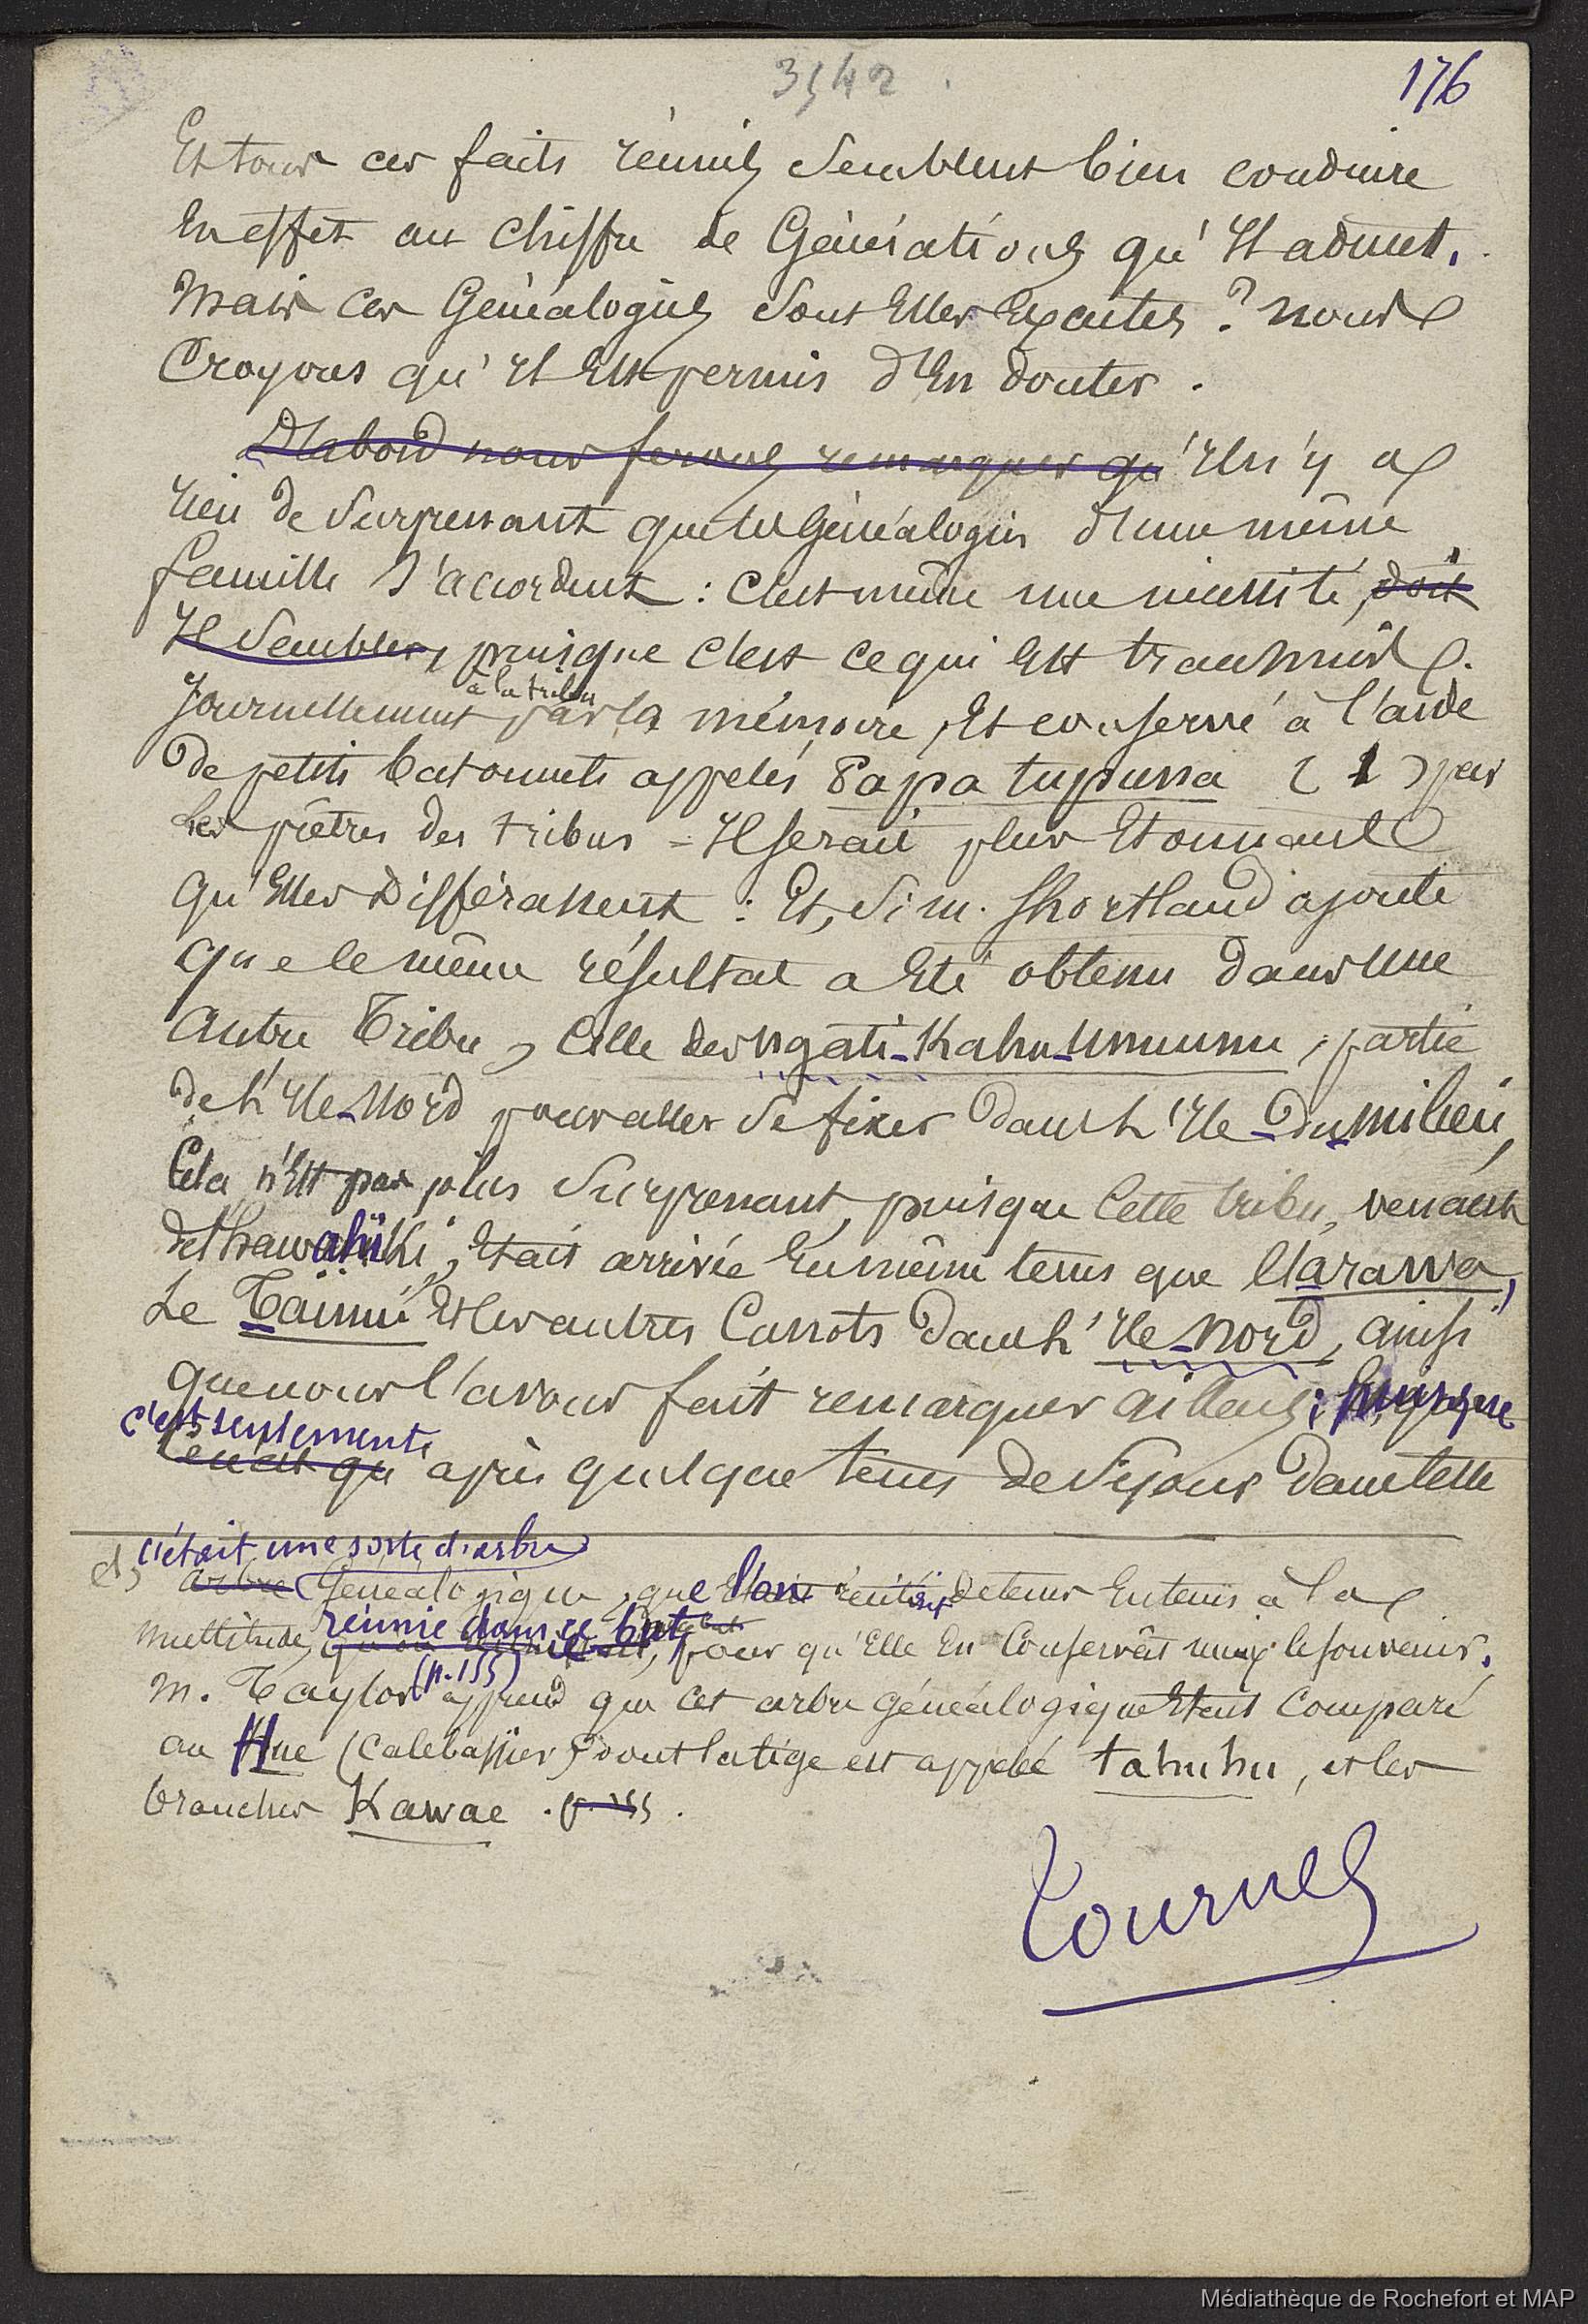 3542
176
Et tous ces faits réunis semblent bien conduire
En effet au chiffre de Générations qu'Il admet.
Mais ces Généalogies sont Elles Exactes ? nous
Croyons qu'Il Est permis d'En douter.
D'abord nous ferons remarquer qu'Il n'y a
rien de surprenant que les Généalogies d'une même
famille s'accordent : c'est même une nécessité, doit
Il sembler, puisque c'est ce qui Est transmis
à la tribu
Journellement par la mémoire, Et conservé à l'aide
de petits batonnets appelés Papa tupuna (1) par
les prêtres des tribus = Il serait plus Etonnant
qu'Elles différassent : Et, si m. Shortland ajoute
que le même résultat a Eté obtenu dans une
autre Tribu, Celle des ngati-Kahu-Unuunu, partie
de L'Ile-Nord pour aller se fixer dans L'Ile-du-milieu,
Cela n'Est pas plus surprenant, puisque Cette tribu, venant
de Hawahiki, Etait arrivée En même tems que l'arawa,
Le Taïnui Et les autres Canots dans L'Ile-Nord, ainsi
que nous l'avons fait remarquer ailleurs ; puisque
c'est seulement
Ce n'est qu' après quelque tems de séjour dans cette
c'était une sorte d'arbre
(1) arbre Généalogique, que l'on récitait de tems En tems à la
réunie dans ce but
multitude, pour qu'Elle En Conservât mieux le souvenir.
(p. 155)
M. Taylor apprend que cet arbre généalogique Etait comparé
au Hue (Calebassier) dont la tige est appelé tahuhu, et les
branches Kawae . p. 155 .
Tournez
Médiathèque de Rochefort et MAP